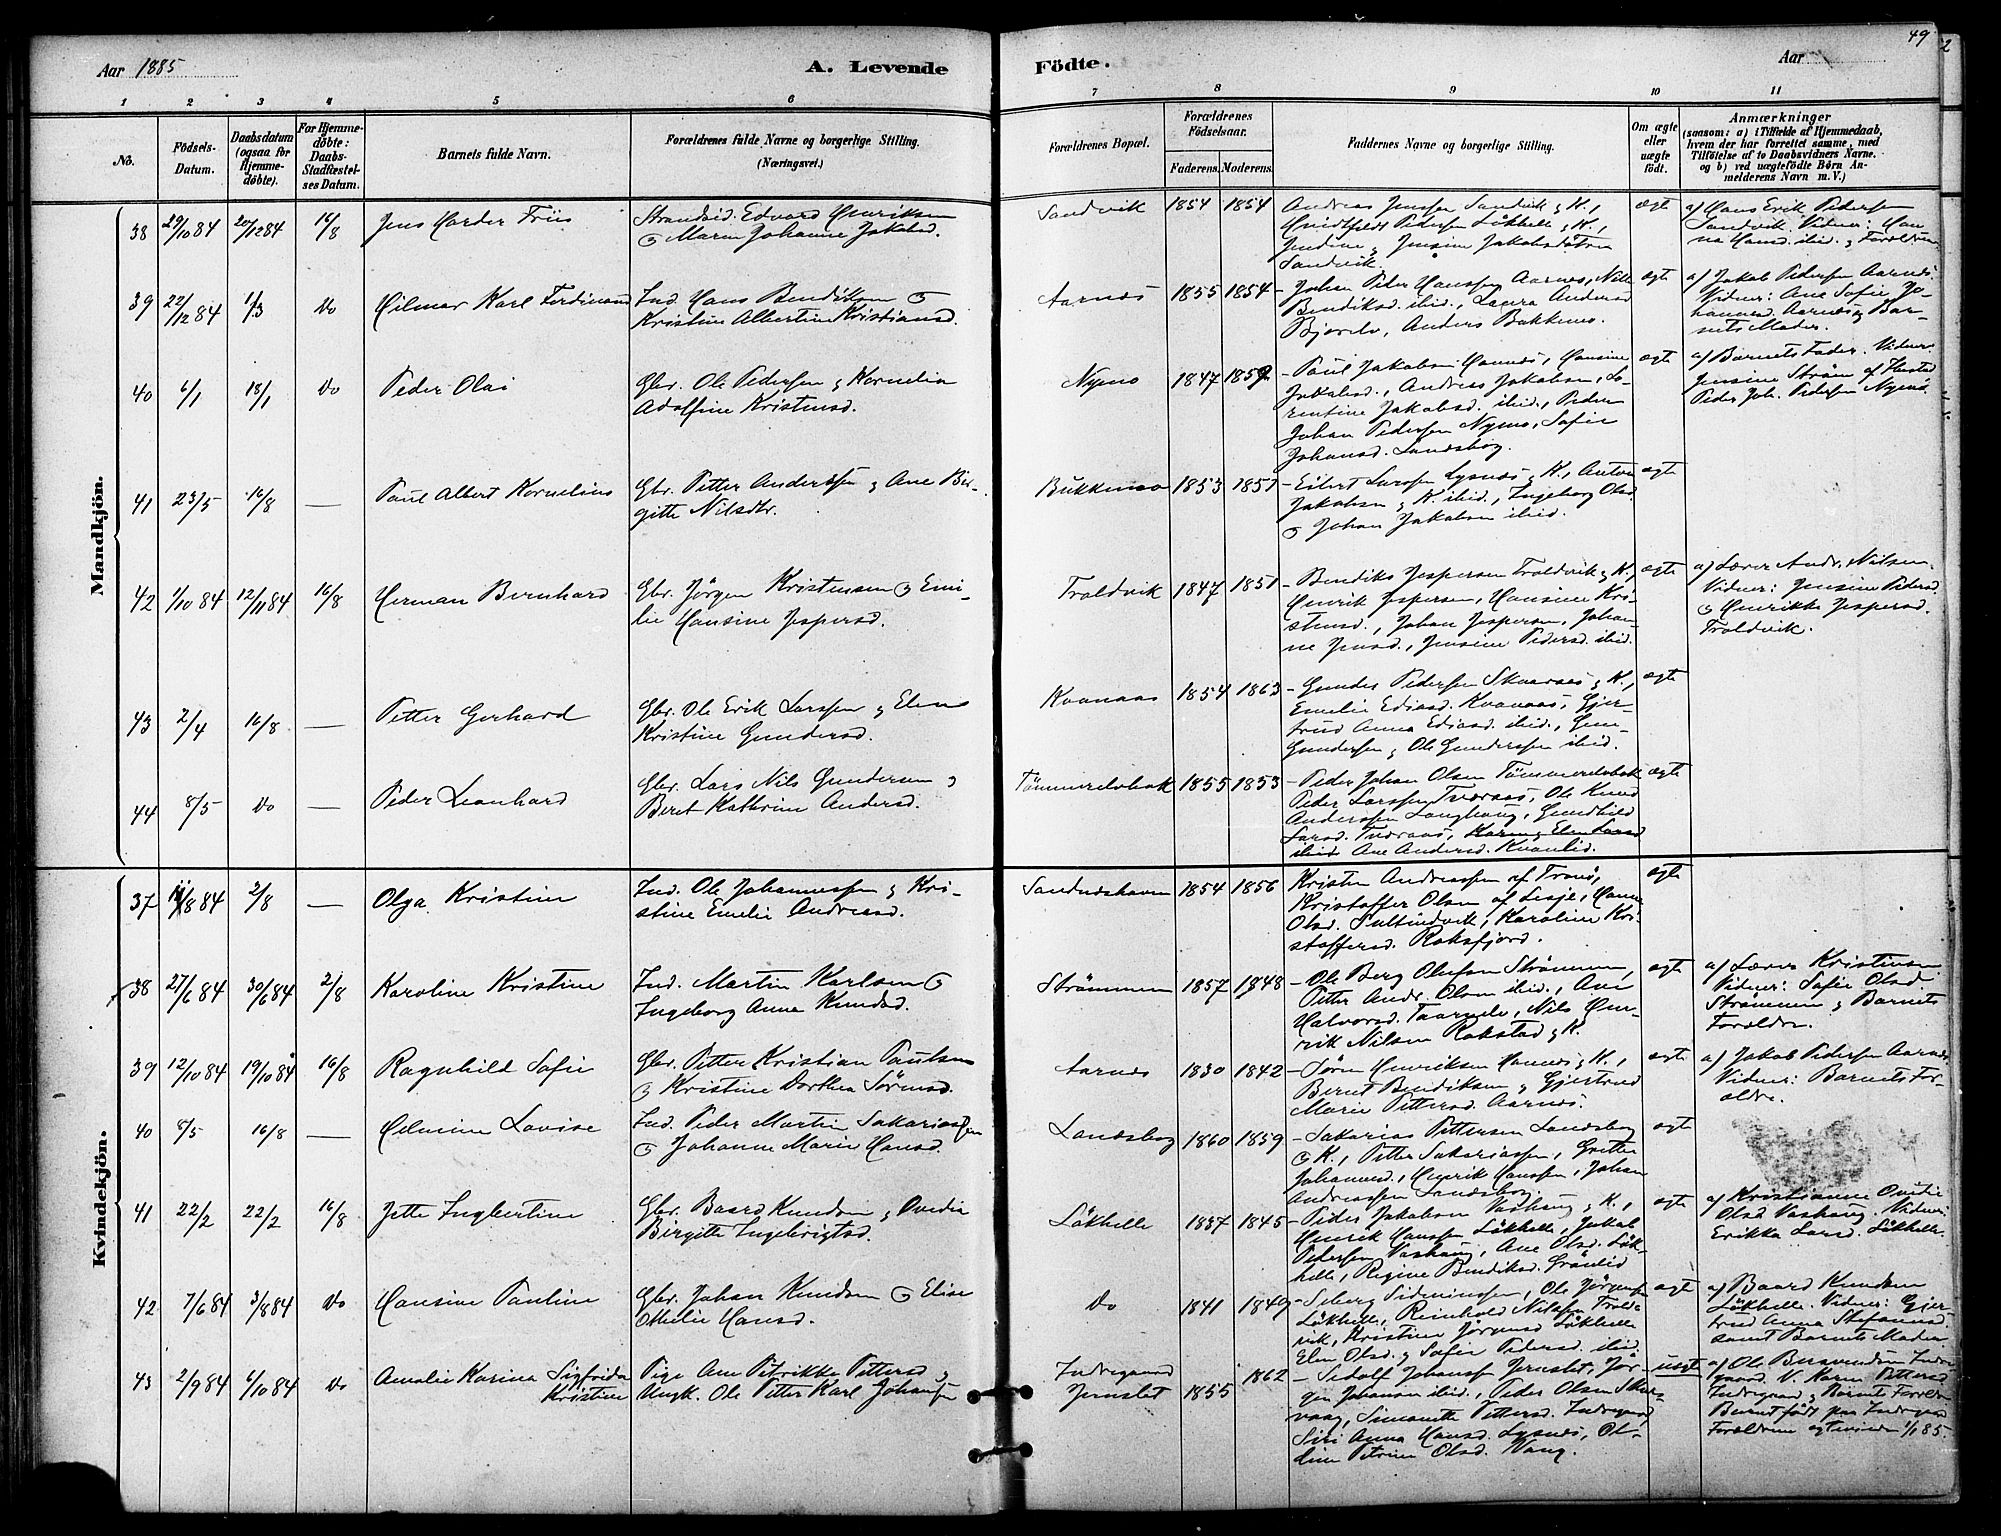 49
2
Aar 1885
A. Levende
Födte.
Aar
1 2 3 4 5 6
7 8 9 10 11
No.
Födsels-Datum.
Daabsdatum (ogsaa for Hjemme-döbte).
For Hjemme-döbte: Daabs-Stadfæstel-ses Datum.
Barnets fulde Navn.
Forældrenes fulde Navne og borgerlige Stilling.
(Næringsvei.)
Forældrenes Bopæl.
Forældrenes Födselsaar.
Faderens. Moderens.
Faddernes Navne og borgerlige Stilling.
Om ægte eller uægte födt.
Anmærkninger
(saasom: a) i Tilfælde af Hjemmedaab,
hvem der har forrettet samme, med
Tilföielse af to Daabsvidners Navne.
og b) ved uægtefödte Börn An-
melderens Navn m. V.)
Mandkjön.
38 29/10 84 20/12 84 16/8 Jens Harder Friis
Strandsid. Edvard Henriksen
& Maren Johanne Jakobsd.
Sandvik 1854 1854
Andreas Jenssen Sandvik & K.,
Hvidtfeldt Pedersen Lökhelle & K.,
Jensine Jakobsdatter
Sandvik.
ægte
a) Hans Erik Pedersen
Sandvik. Vidner: Han-
na Hansd. ibid. & Forældrene
39 22/12 84 1/3 Do Hilmar Karl Ferdinand
Ind. Hans Bendiksen &
Kristine Albertine Kristiansd.
Aarnes 1855 1854
Johan Peder Hanssen Aarnes,
Bendiksd. ibid., Laura Andersd
Bjorelv, Anders Bakkemo.
ægte
a) Jakob Pedersen Aarnes.
Vidner: Ane Sofie Jo-
hannesd. Aarnes & Bar-
nets Moder.
40 6/1 18/1 Do Peder Olai
Gbr. Ole Pedersen & Kornelia
Adolfine Kristensd.
Nymo 1847 1859
Paul Jakobsen Hamnes, Hansine
Jakobsd., Andreas Jakobsen, La-
rentine Jakobsd. ibid., Peder
Johan Pedersen Nymo, Sofie
Johansd. Landsbog.
ægte
a) Barnets Fader. Vidner
Jensine Ström af
Peder Joh. Pedersen Nymo.
41 23/5 16/8 — Paul Albert Kornelius
Gbr. Petter Anderssen & Ane Bir-
gitte Nilsdtr.
Bukkemo 1853 1851
Eilert Larssen Lysnes & K., Anton
Jakobsen & K. ibid., Ingeborg Olsd
& Johan Jakobsen ibid.
ægte
42 1/10 84 12/11 84 16/8 Herman Bernhard
Gbr. Jörgen Kristensen & Emi-
lie Hansine Jespersd.
Troldvik 1847 1851
Bendiks Jespersen Troldvik & K.,
Henrik Jespersen, Hansine Kri-
stensd., Johan Jespersen, Johan-
ne Jensd., Jensine Pedersd. ibid.
ægte
a) Lærer Andr. Nilsen.
Vidner: Jensine Pedersd.
& Henrikke Jespersd.
Troldvik.
43 2/4 16/8 — Petter Gerhard
Gbr. Ole Erik Larssen & Elen
Kristine Gundersd.
Kvanaas 1854 1863
Gunder Pedersen & K.,
Emelie Ediasd. Kvanaas, Gjer-
trud Anna Ediasd. ibid.,
Gundersen & Ole Gunderssen ibid.
ægte
44 8/5 Do — Peder Leonhard
Gbr. Lars Nils Gundersen &
Beret Kathrine Andersd.
Tömmerelvbak 1855 1853
Peder Johan Olsen Tömmerelvbak
Peder Larssen Tveraas, Ole Knud
Anderssen Langhaug, Gundhild
Larsd. Tveraas, Karen & Elen Larsd
ibid. Ane Andersd. Kvanlid.
ægte
Kvindekjön.
37 11/8 84 2/8 — Olga Kristine
Ind. Ole Johannessen & Kri-
stine Emelie Andreasd.
Sandneshavn 1854 1856
Kristen Andreassen af Tromsö,
Kristoffer Olsen af Lesje, Hanna
Olsd. Sultindvik, Karoline Kri-
stoffersd. Roksfjord.
ægte
38 27/6 84 30/6 84 2/8 Karoline Kristine
Ind. Martin Karlsen &
Ingeborg Anna Knudsd.
Strömmen 1857 1848
Ole Berg Olufsen Strömmen,
Petter Andr. Olsen ibid., Ane
Halvorsd. Taarnelv, Nils Hen-
rik Nilsen Rakstad & K.
ægte
a) Lærer Kristensen
Vidner: Sofie Olsd.
Strömmen & Barnets
Forældre.
39 12/10 84 19/10 84 16/8 Ragnhild Sofie
Gbr. Petter Kristian Paulsen
& Kristine Dorthea Sörensd.
Aarnes 1830 1842
Sören Henriksen Hamnes & K.,
Bernt Bendiksen & Gjertrud
Marie Pettersd. Aarnes.
ægte
a) Jakob Pedersen Aarnes
Vidner: Barnets For-
ældre.
40 8/5 16/8 — Helmine Lovise
Ind. Peder Martin Sakariassen
& Johanne Marie Hansd.
Landsbog 1860 1859
Sakarias Pettersen Landsbog
& K., Petter Sakariassen, Grethe
Johannesd., Henrik Hanssen, Johan
Andreassen Landsbog.
ægte
41 22/2 22/2 16/8 Jette Ingbertine
Gbr. Baard Knudsen & Ovedia
Birgitte Ingebrigtsd.
Lökhelle 1837 1845
Peder Jakobsen Vashaug & K.,
Henrik Hanssen Lökhelle, Jakob
Pedersen Vashaug, Ane Olsd. Lök-
helle, Regine Bendiksd. Grönlid
ægte
a) Kristianne Ovedie
Olsd Vashaug. Vidner:
Erikka Larsd. Lökhelle.
42 7/6 84 3/8 84 Do Hansine Pauline
Gbr. Johan Knudsen & Elise
Othelie Hansd.
Do 1841 1849
Seberg Ole Jörgensen
Lökhelle, Reinhold Nilssen Trold-
vik, Kristine Jörgensd Lökhelle
Elen Olsd. & Sofie Pedersd. ibid.
ægte
a) Baard Knudsen
Lökhelle. Vidner: Gjer-
trud Anna Stefansd.
samt Barnets Moder
43 2/9 84 6/10 84 Do Amalie Karina Sigfrida
Kristine
Pige Ane Petrikke Pettersd &
Ungk. Ole Petter Karl Johansen
Indregaard
Jernslet 1855 1862
Sedolf Johanssen Jernslet, Jör-
gen Johansen ibid., Peder Olsen
vaag, Simonette Pettersd. Indregaard,
Siri Anna Hansd. Lysnes, Ol-
dine Petrine Olsd. Wang.
uægte
a) Ole Indre-
gaard V. Karen Pettersd
Indregaard & Barnets Forældre
Barnet födt paa Indregaard
Forældrene ægteviede 1/1 85.